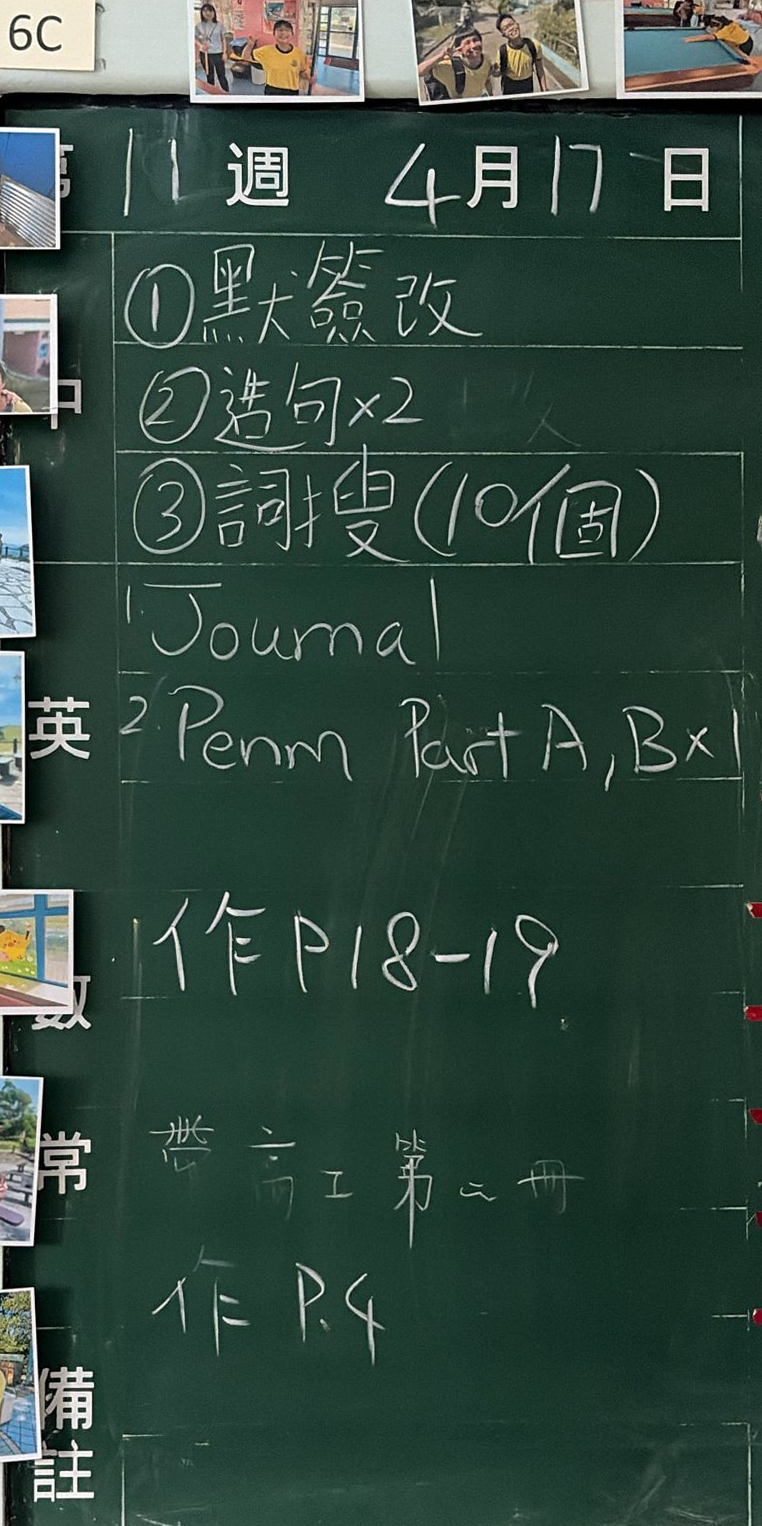 6C
第 11 週 4月17日
中
①默簽改
②造句×2
③詞搜(10個)
英
1 Journal
2. Penm Part A, B×1
數
作 P18-19
常
帶 高工第二冊
作 P.4
備註